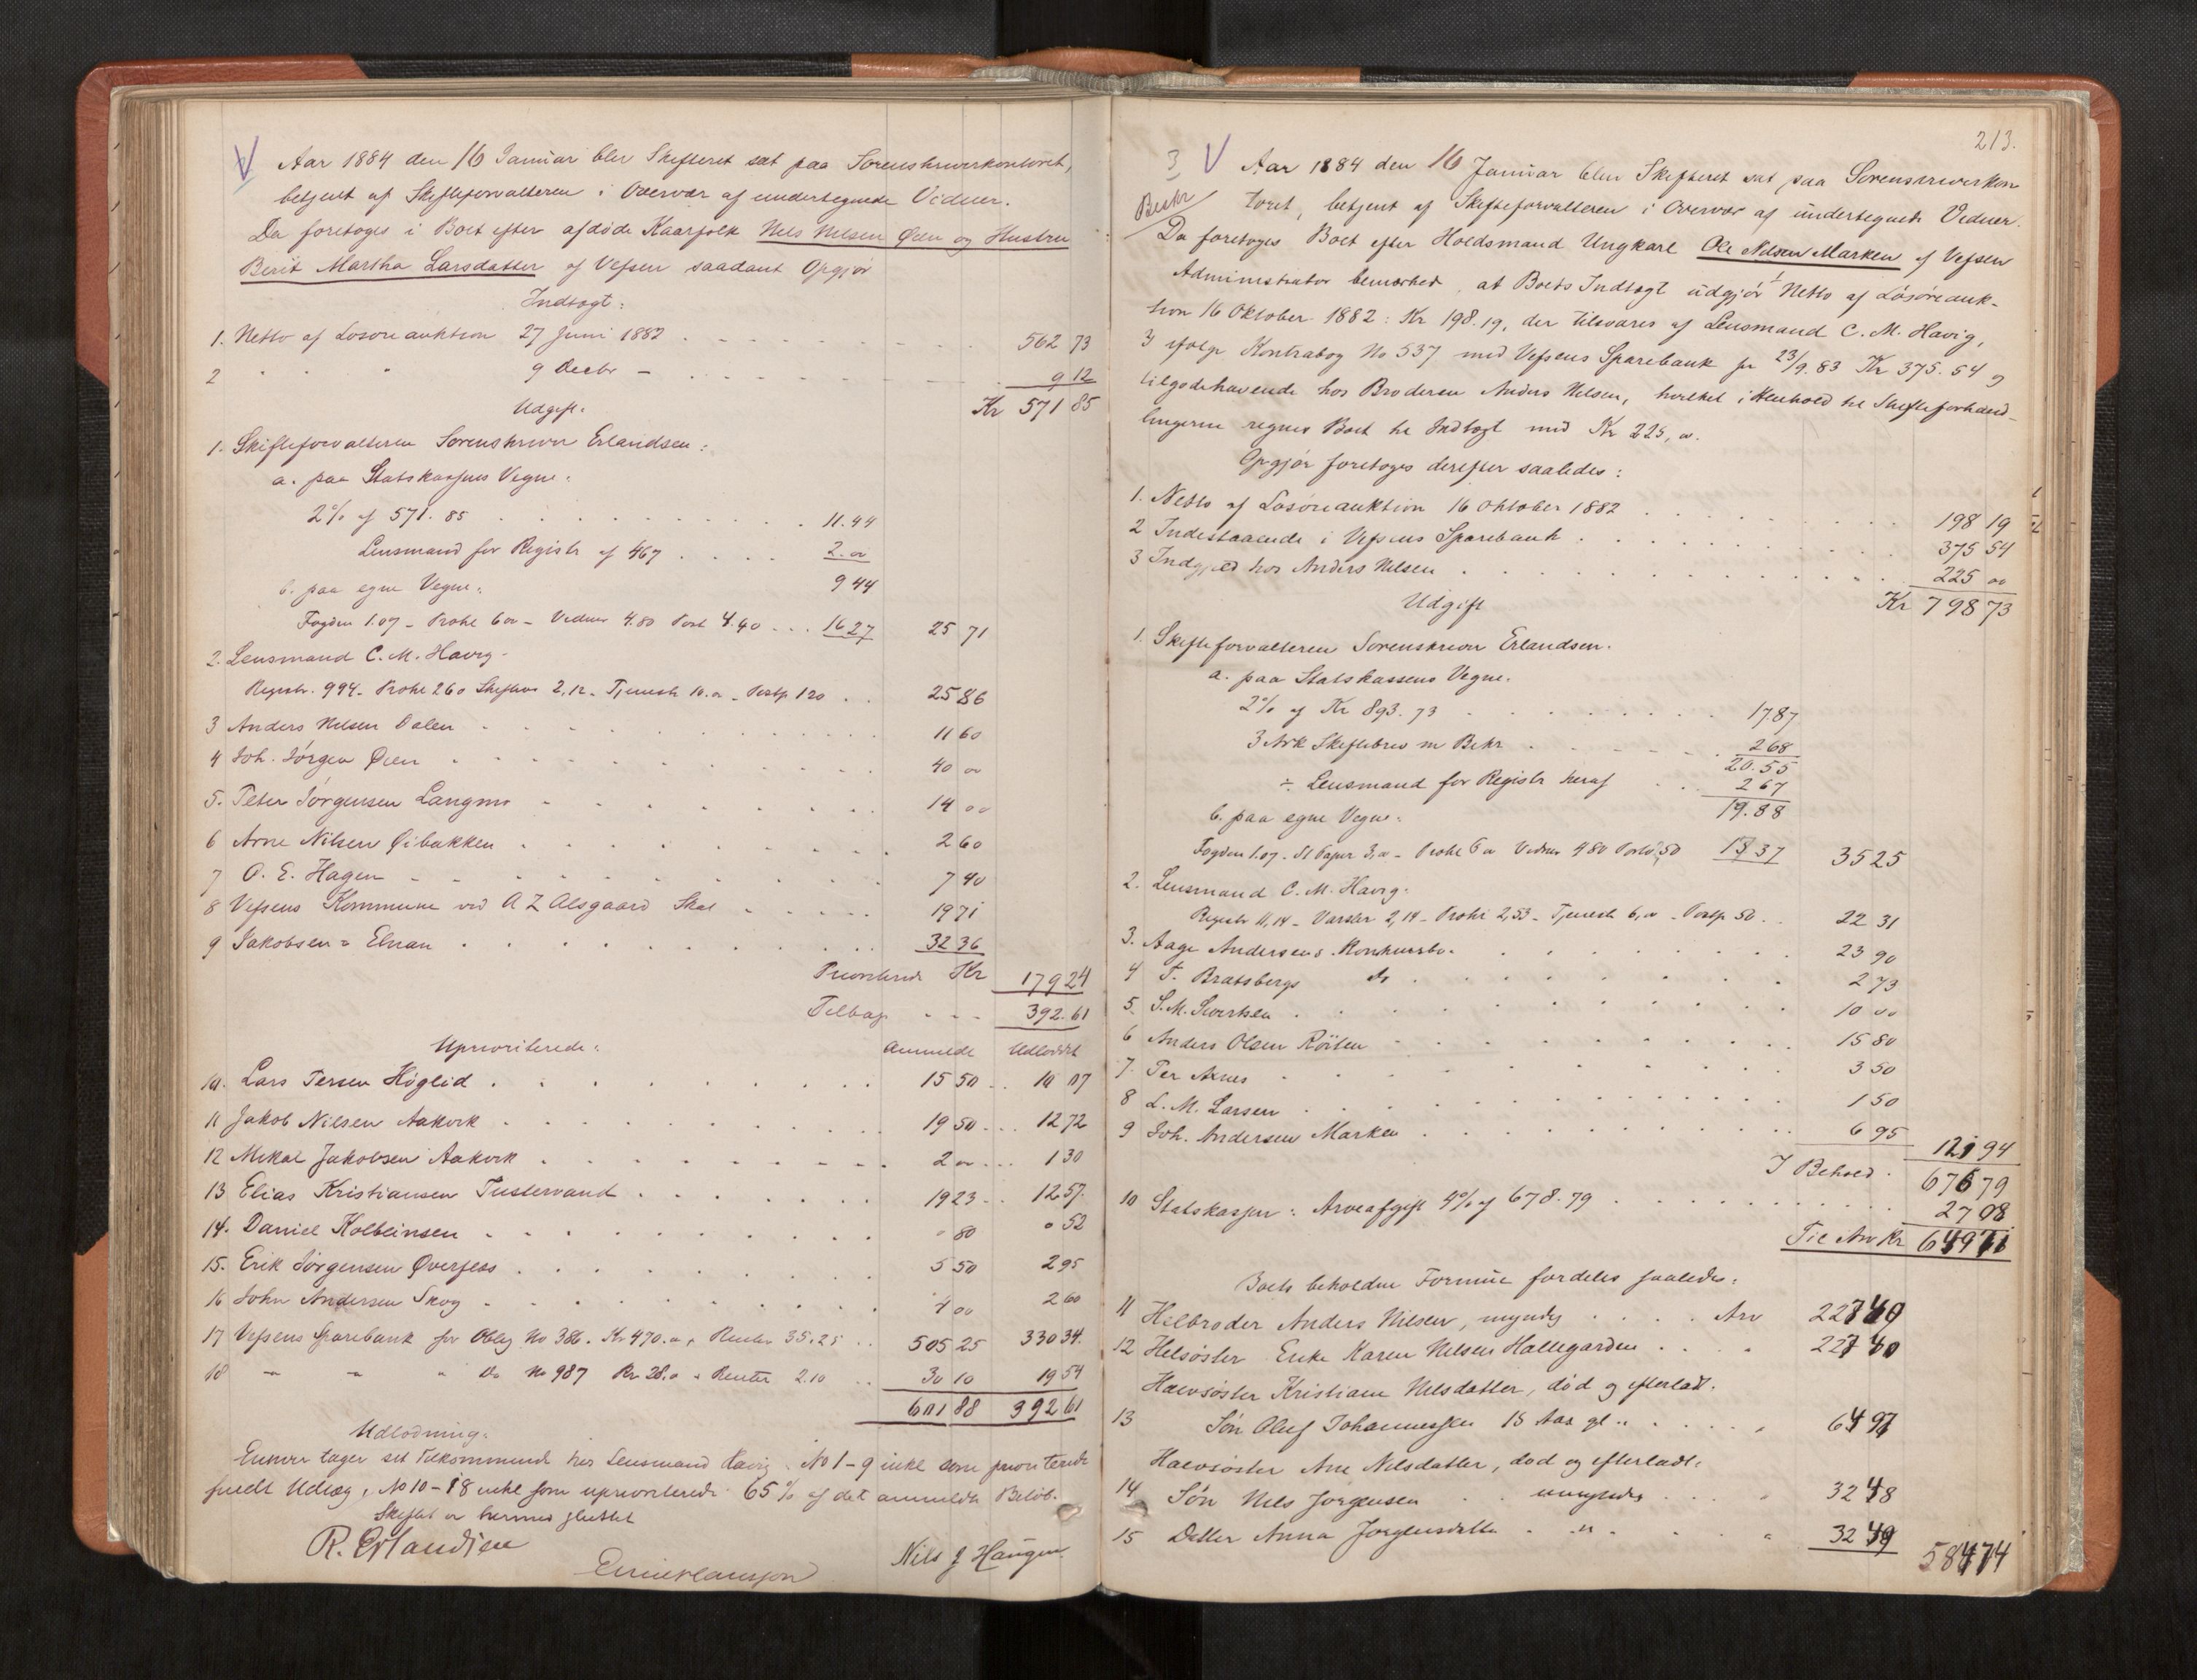 Aar 1884 den 16 Januar blev Skifteret sat paa Sorenskriverkontoret,
betjent af Skifteforvalteren i Overvær af undertegnede Vidner.
Da foretoges i Boet efter afdøde Kaarfolk Nils Nilsen Øien og Hustru
Berit Martha Larsdatter af Vefsen saadant Opgjør
Indtægt:
1. Netto af Løsøreauktion 27 Juni 1882 562 73
2 " " " 9 Decbr - 9 12
Kr 571 85
Udgift.
1. Skifteforvalteren Sorenskriver Erlandsen:
a. paa Statskassens Vegne:
2% af 571.85 11.44
Lensmand for Registr af 467 2.00
9 44
b. paa egne Vegne:
Fogden 1.07 - Protk 6 00 - Vidner 4.80 Port 4.40 16 27 25 71
2. Lensmand C. M. Havig.
Registr. 994 - Protk 260 2,12 - Tjeneste 10.00 - Postp 120 25 86
3 Anders Nilsen Dalen 11 60
4 Joh. Jørgen Øien 40 00
5. Peter Jørgensen Langmo 14 00
6 Arne Nilsen Øibakken 2 60
7 O. E. Hagen 7 40
8 Vefsens Kommune ved A Z Alsgaard Skat 19 71
9 Jakobsen = Elnan 32 36
Prioriterede Kr 179 24
Tilbage 392.61
Uprioriterede: Anmeldt Udloddet
10. Lars Persen Høglid 15 50 10 07
11 Jakob Nilsen Aakvik 19 50 12 72
12 Mikal Jakobsen Aakvik 2 00 1 30
13 Elias Kristiansen Tustervand 19 23 12 57.
14. Daniel Kolbeinsen " 80 0 52
15. Erik Jørgensen 5 50 2 95
16 John Andersen Skog 4 00 2 60
17 Vefsens Sparebank for Oblig No 386. Kr 470.00, Renter 35.25 505 25 330 34.
18 " " " Do No 987 Kr 28.0 + Renter 2.10 30 10 19 54
601 88 392 61
Udlodning:
Enhver tager sit Tilkommende hos Lensmand Havig. No 1-9 inkl som prioriterede
fuldt Udlæg, No 10-18 inkl som uprioriterede 65% af det anmeldte Beløb.
Skiftet er hermed sluttet
R. Erlandsen
Nils J Haugen
213.
3 Aar 1884 den 16 Januar blev Skifteret sat paa Sorenskriverkon
toret, betjent af Skifteforvalteren i Overvær af undertegnede Vidner.
Da foretoges Boet efter Ungkarl Ole Nilsen Marken af Vefsen
Administrator bemærked, at Boets Indtægt udgjør 1 Netto af Løsøreauk-
tion 16 Oktober 1882: Kr 198.19, der tilsvares af Lensmand C. M. Havig,
ifølge Kontrabog No 537 med Vefsens Sparebank pr 23/9.83 Kr 375.54 og
tilgodehavende hos Broderen Anders Nilsen, hvilket i Henhold til Skifteforhand-
lingerne regnes Boet til Indtægt med Kr 225,00.
Opgjør foretoges derefter saaledes:
1. Netto af Løsøreauktion 16 Oktober 1882 198 19
2 Indestaaende i Vefsens Sparebank 375 54
3 Indgjæld hos Anders Nilsen 225 00
Udgift Kr 798 73
1. Skifteforvalteren Sorenskriver Erlandsen.
a. paa Statskassens Vegne.
2% af Kr 893.73 17.87
3 Ark Skiftebrev m Bekr 2 68
20.55
÷ Lensmand for Registr heraf 2 67
19.88
b. paa egne Vegne:
Fogden 1.07 - St Papir 3,00 - Protk 6 00 Vidner 4 80 Porto 50 15 37 35 25
2. Lensmand C. M. Havig:
Registr 11,14 - Varsler 2,14 - Protk 2,53 - Tjeneste 6,00 - Postp 50 22 31
3. Aage Andersens Konkursbo 23 90
4 F. Bratsbergs do 2 73
5. S. M. Sivertsen 10 00
6 Anders Olsen Røiten 15 80
7. Per 3 50
8 L. M. Larsen 1 50
9 Joh. Andersen Marken 6 95 121 94
I Behold 676 79
10 Statskassen: Arveafgift 4% af 678.79 27 08
Til Arv Kr 649 71
Boets beholdne Formue fordeles saaledes:
11 Helbroder Anders Nilsen, myndig Arv 227 40
12 Helsøster Enke Karen Nilsen Hallegarden 227 40
Halvsøster Kristiane Nilsdatter, død og efterladt.
13 Søn Oluf Johannessen 15 Aar gl 64 97
Halvsøster Ane Nilsdatter, død og efterladt:
14 Søn Nils Jørgensen umyndig 32 48
15 Datter Anna Jørgensdatter " 32 49 584 74